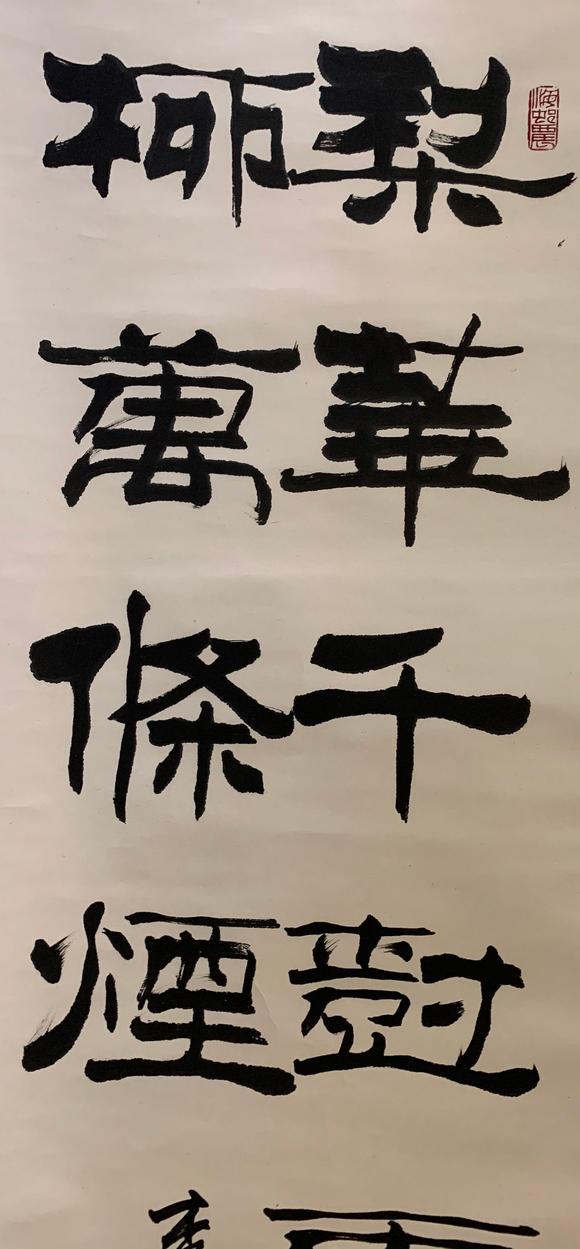 梨華千樹
柳萬條煙